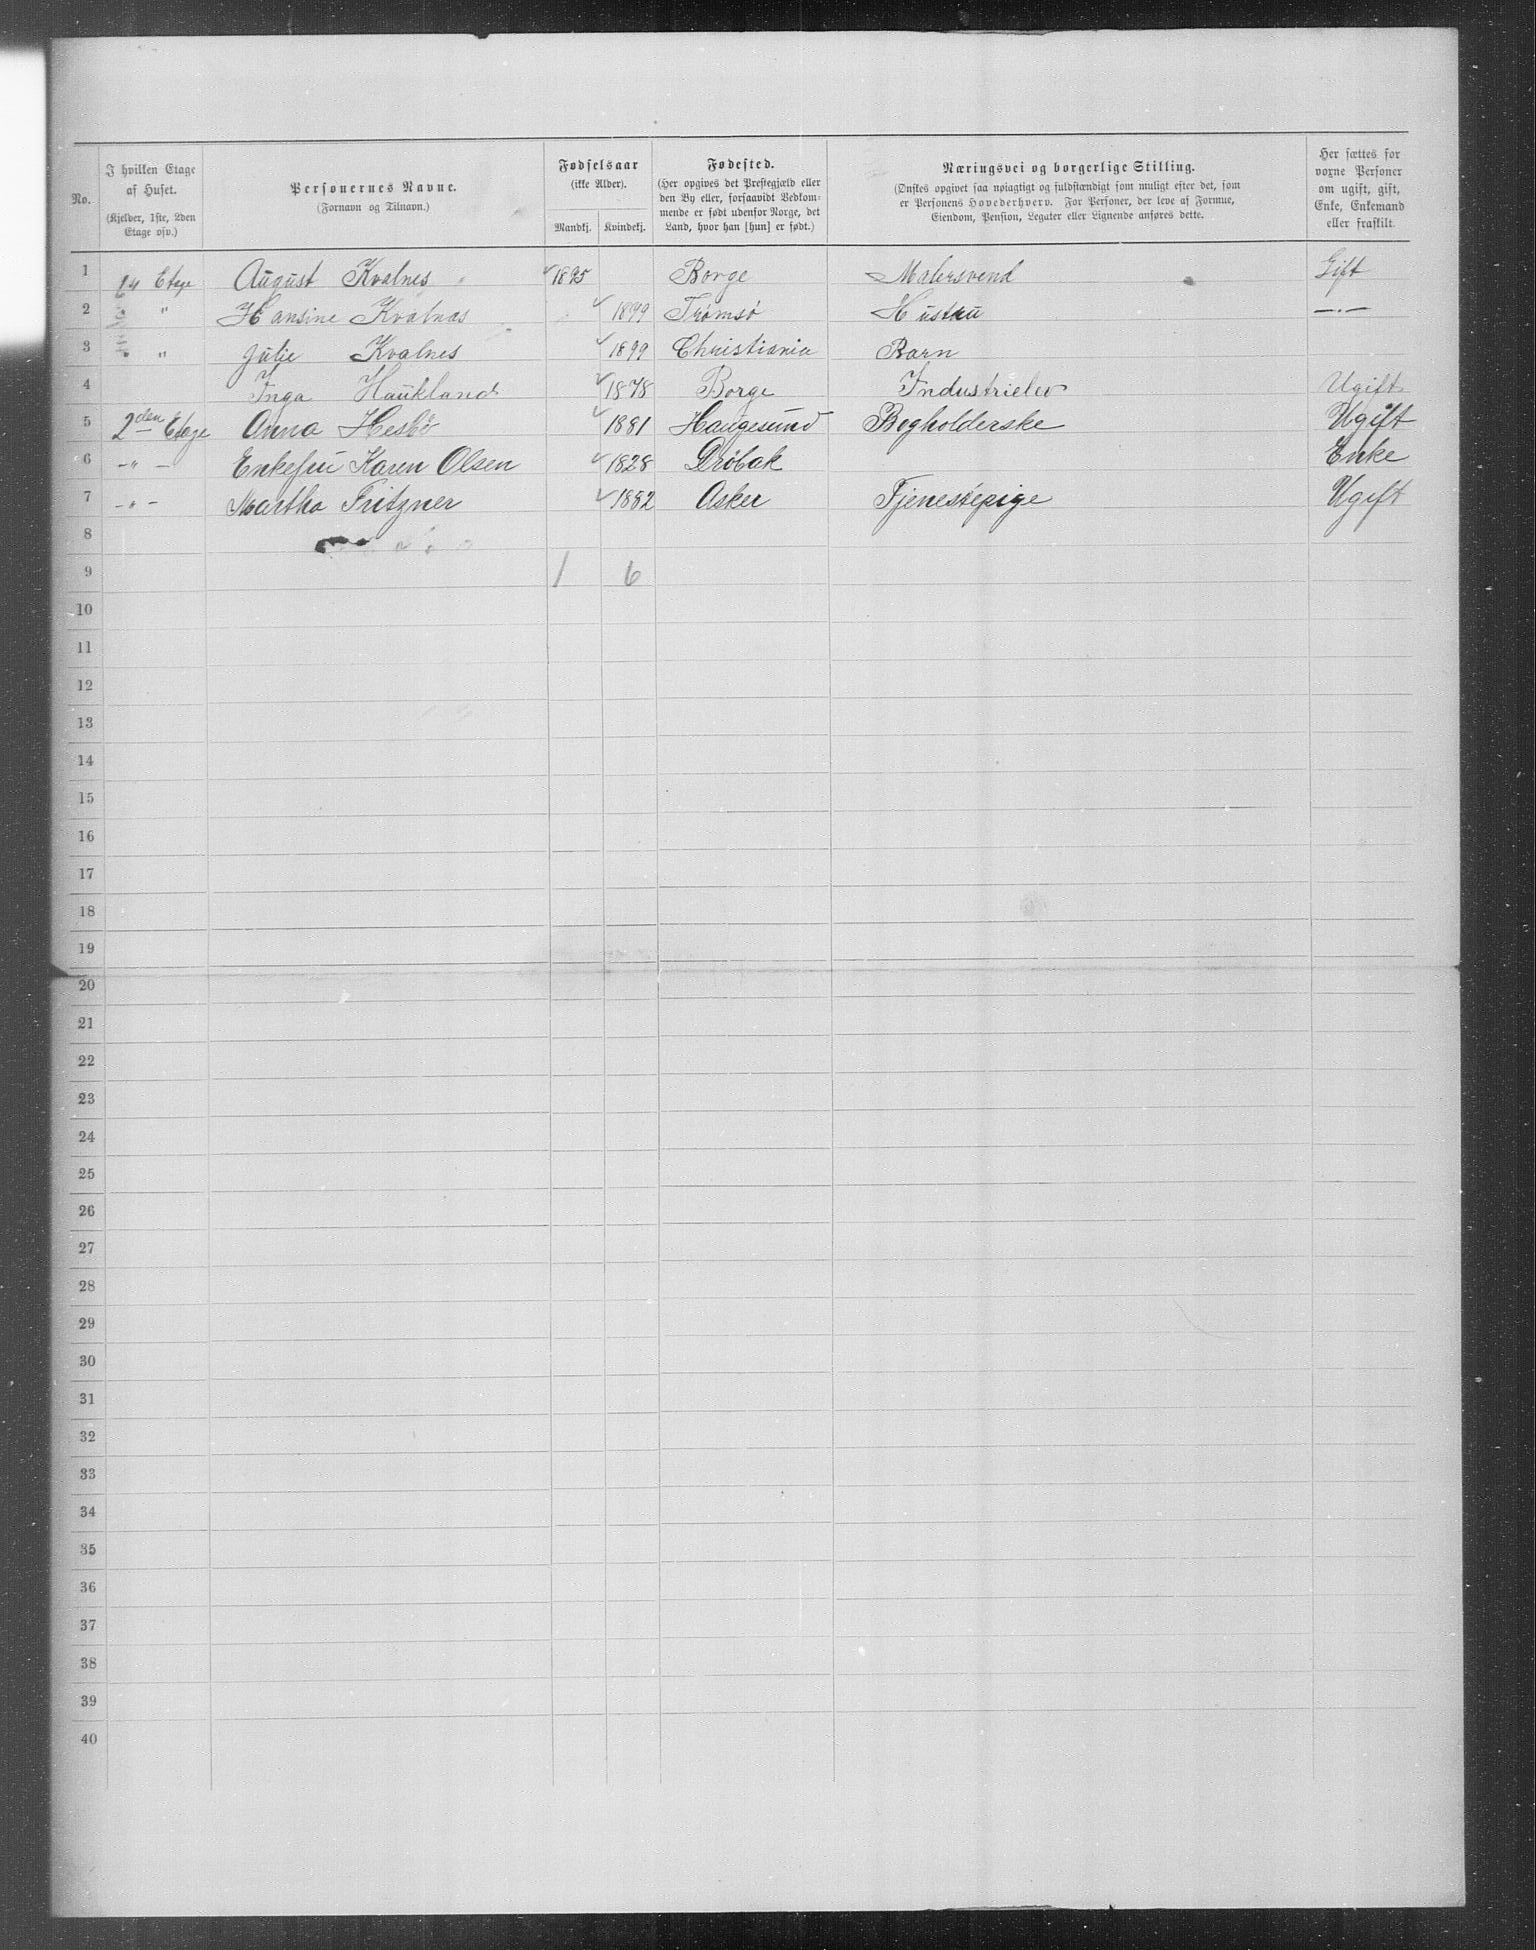 No.
I hvilken Etage af Huset. (Kjelder, 1ste, 2den Etage osv.)
Personernes Navne. (Fornavn og Tilnavn.)
Fødselsaar (ikke Alder). Mandkj. Kvindekj.
Fødested. (Her opgives det Prestegjæld eller den By eller, forsaavidt Vedkommende er født udenfor Norge, det Land, hvor han [hun] er født.)
Næringsvei og borgerlige Stilling. (Ønskes opgivet saa nøiagtigt og fuldstændigt som muligt efter det, som er Personens Hovederhverv. For Personer, der leve af Formue, Eiendom, Pension, Legater eller Lignende anføres dette.
Her sættes for voxne Personer om ugift, gift, Enke, Enkemand eller fraskilt.
1 Etage August Kvalnes 1895 Borge Malersvend Gift
2 " Hansine Kvalnes 1899 Tromsø Hustru —·—
3 " Julie Kvalnes 1899 Christiania Barn
4 Inga Haukland 1878 Borge Industrielev Ugift
5 2den Etage Anna Hesbö 1881 Haugesund Bogholderske Ugift
6 -"- Enkefru Karen Olsen 1828 Drøbak Enke
7 -"- Martha Fritzner 1882 Asker Tjenestepige Ugift
8
9 1 6
10
11
12
13
14
15
16
17
18
19
20
21
22
23
24
25
26
27
28
29
30
31
32
33
34
35
36
37
38
39
40